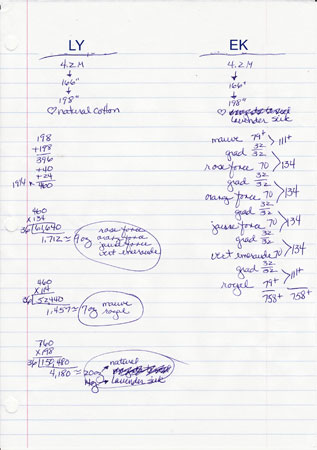 LY
4.2 M
166"
198"
♡ natural cotton
198
+198
396
+40
+24
460
460
x 134
36 61,640
1,712 ≈ 9oz
rose force
orange force
jaune force
vert emeraude
460
x 114
36 52440
1,457 ≈ 7oz
mauve
royal
760
x 198
36 150,480
4,180 ≈ 20oz
natural
lavender silk
EK
4.2 M
166"
198"
♡
lavender silk
mauve 79+
111+
grad 32
32
rose force 70
134
grad 32
32
orang force 70
134
grad 32
32
jaune force 70
134
grad 32
32
vert emeraude 70
134
grad 32
32
111+
royal 79+
758+ 758+